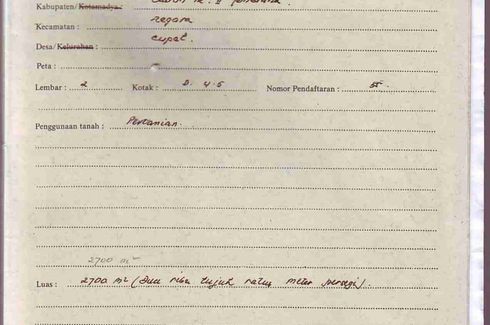 Kabupaten/Kotamadya :
Kecamatan : negara
Desa/Kelurahan : cupel.
Peta : -
Lembar : 2 Kotak : D. 4-5 Nomor Pendaftaran :
Penggunaan tanah : Pertanian.
2700 m²
Luas : 2700 m² (Dua ribu tujuh ratus meter persegi).